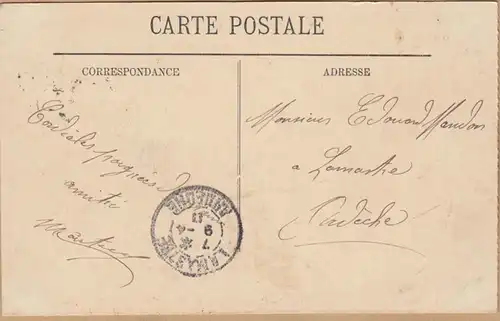 CARTE POSTALE
CORRESPONDANCE
ADRESSE
Cordiales poignées d
amitié
Monsieur Edouard Mandon
a Lamastre
Ardèche
LAMASTRE
7
9 -4
11
ARDECHE